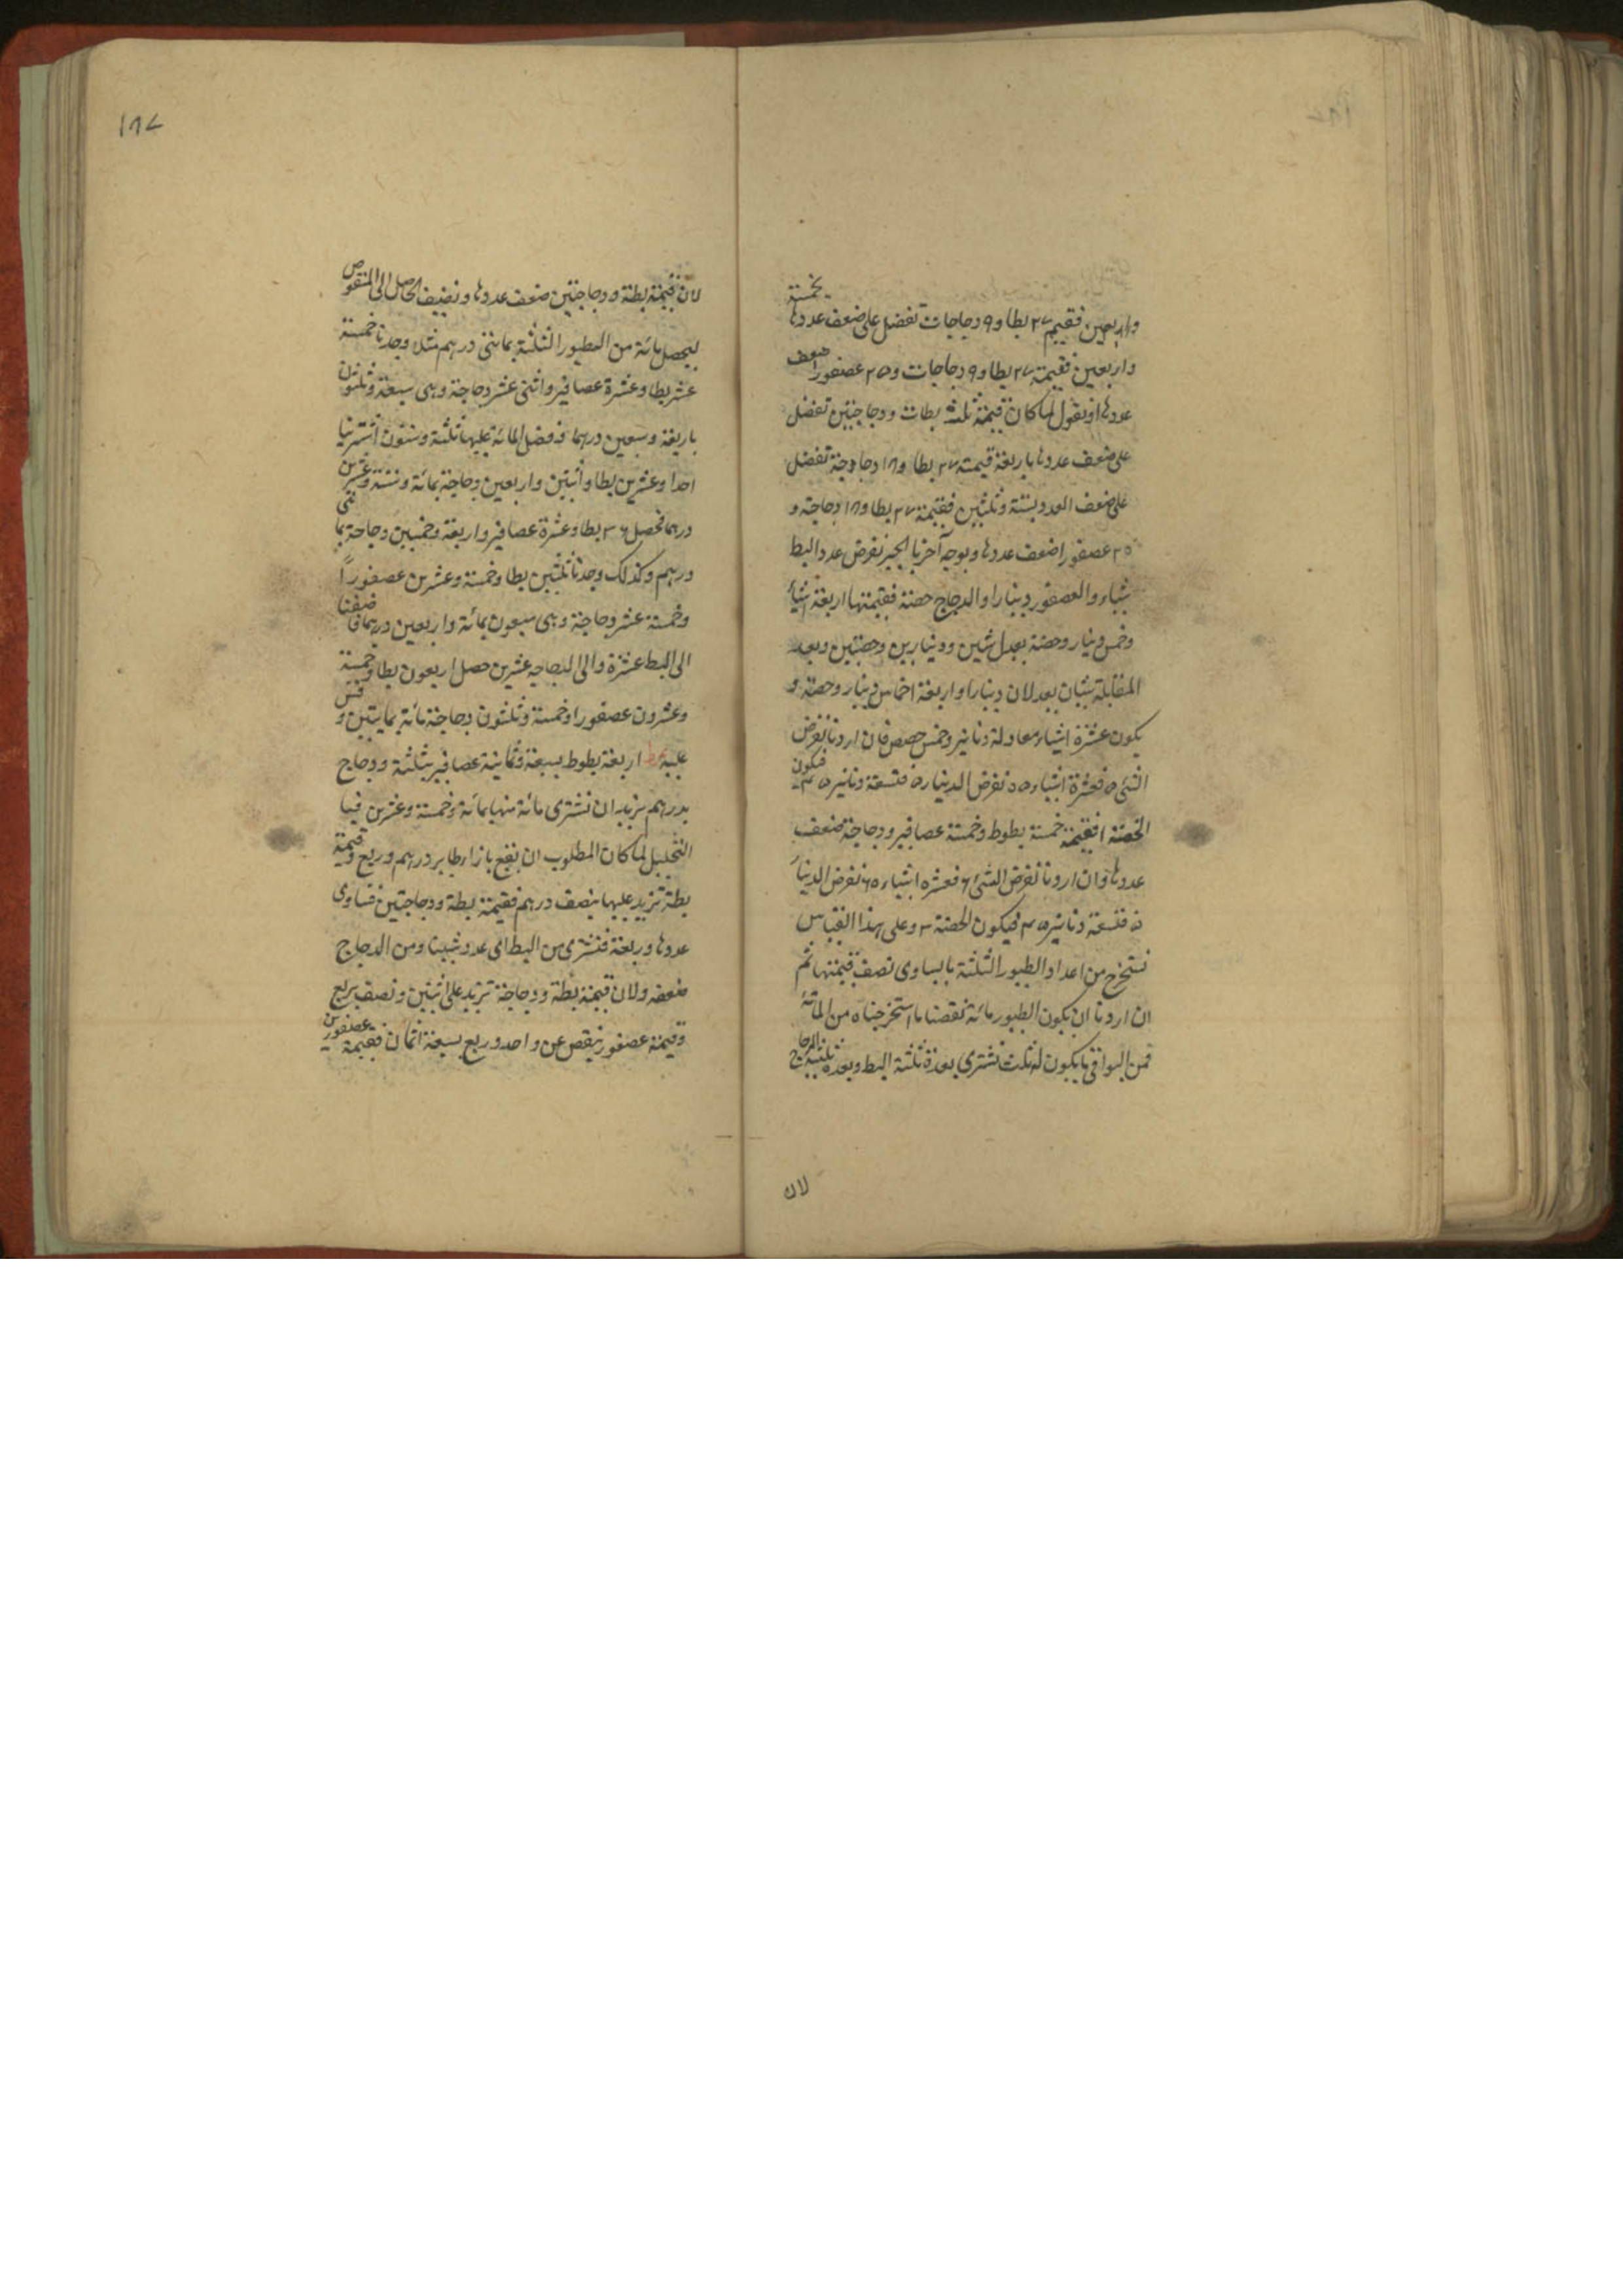 واربعين فقيمة ٢٧ بطا و٩ دجاجات تفضل على ضعف عددها بخمسة
واربعين فقيمة ٢٧ بطا و٩ دجاجات و٢٥ عصفورا ضعف
عددها او نقول لما كان قيمة ثلث بطات ودجاجتين تفضل
على ضعف عددها باربعة قيمة ٢٧ بطا و١٨ دجاجة تفضل
على ضعف العدد بستة وثلثين فقيمة ٢٧ بطا و١٨ دجاجة و
٢٠ عصفورا ضعف عددها وبوجه آخر بالجبر نفرض عدد البط
شياء والعصفور دينارا والدجاج حصة فقيمتها اربعة اشياء
وخمس دينار وحصة يعدل شيئين ودينارين وحصتين وبعد
المقابلة شيئان يعدلان دينارا واربعة اخماس دينار وحصة و
يكون عشرة اشياء معادلة دنانير وخمس حصص فان اردنا نفرض
الشئ ٥ فعشرة اشياء ٥٠ نفرض الدينار ٥ فتسعة دنانير ٤٥ فيكون
الحصة ١ فقيمة خمسة بطوط وخمسة عصافير ودجاجة ضعف
عددها وان اردنا نفرض الشئ ٦ فعشرة اشياء ٦٠ نفرض الدينار
٥ فتسعة دنانير ٤٥ فيكون الحصة ٣ وعلى هذا القياس
نستخرج من اعداد الطيور الثلثة ما يساوى نصف قيمتها ثم
ان اردنا ان يكون الطيور مائة نقصنا ما استخرجناه من المائة
فمن البواقى ما يكون له ثلث نشترى بعدة ثلثه البط وبعدة ثلثيه الدجاج
لان
١٨٧
لان قيمة بطة ودجاجتين ضعف عددها ونضيف الحاصل الى المنقوص
ليحصل مائة من الطيور الثلثة بمائتى درهم مثلا وجدنا خمسة
عشر بطا وعشرة عصافير واثنى عشر دجاجة وهى سبعة وثلثون
باربعة وسبعين درهما فضل المائة عليها ثلثة وستون اشترينا
احدا وعشرين بطا واثنتين واربعين دجاجة بمائة وستة وعشرين
درهما فحصل ٣٦ بطا وعشرة عصافير واربعة وخمسين دجاجة بمائتى
درهم وكذلك وجدنا ثلثين بطا وخمسة وعشرين عصفورًا
وخمسة عشر دجاجة وهى سبعون بمائة واربعين درهما فاضفنا
الى البط عشرة والى الدجاجة عشرين حصل اربعون بطا وخمسة
وعشرون عصفورا وخمسة وثلثون دجاجة مائة بمايتين و قس
عليه اربعة بطوط بسبعة وثمانية عصافير بثلثة ودجاج
بدرهم نريد ان نشترى مائة منها بمائة وخمسة وعشرين فبا
التحليل لما كان المطلوب ان يقع بازاء طاير درهم وربع وقيمة
بطة تزيد عليها بنصف درهم فقيمة بطة ودجاجتين تساوى
عددها وربعة فنشترى من البط اى عدد شيئا ومن الدجاج
ضعفه ولان قيمة بطة ودجاجة تزيد على اثنين ونصف بربع
وقيمة عصفور ينقص عن واحد وربع بسبعة اثمان فقيمة عصفورين